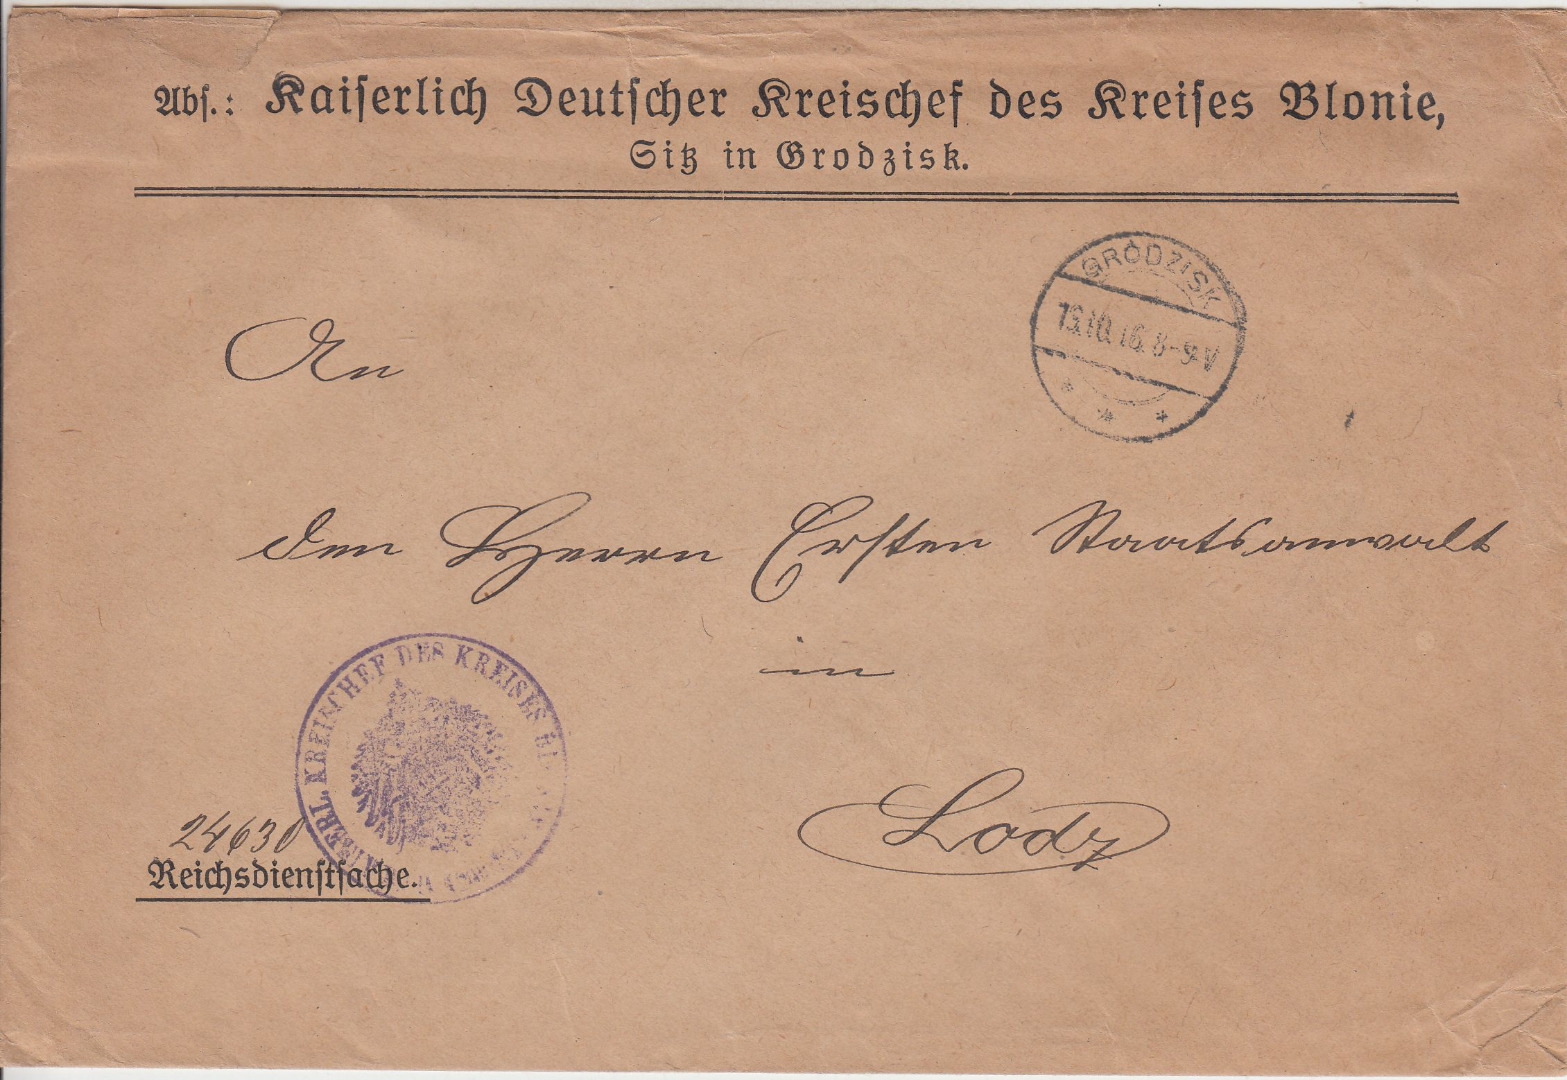 Abs.: Kaiserlich Deutscher Kreischef des Kreises Blonie,
Sitz in Grodzisk.
GRODZISK
An
den Herrn Ersten Staatsanwalt
in
Lodz
KAISERL. KREISCHEF DES KREISES
24630
Reichsdienstsache.